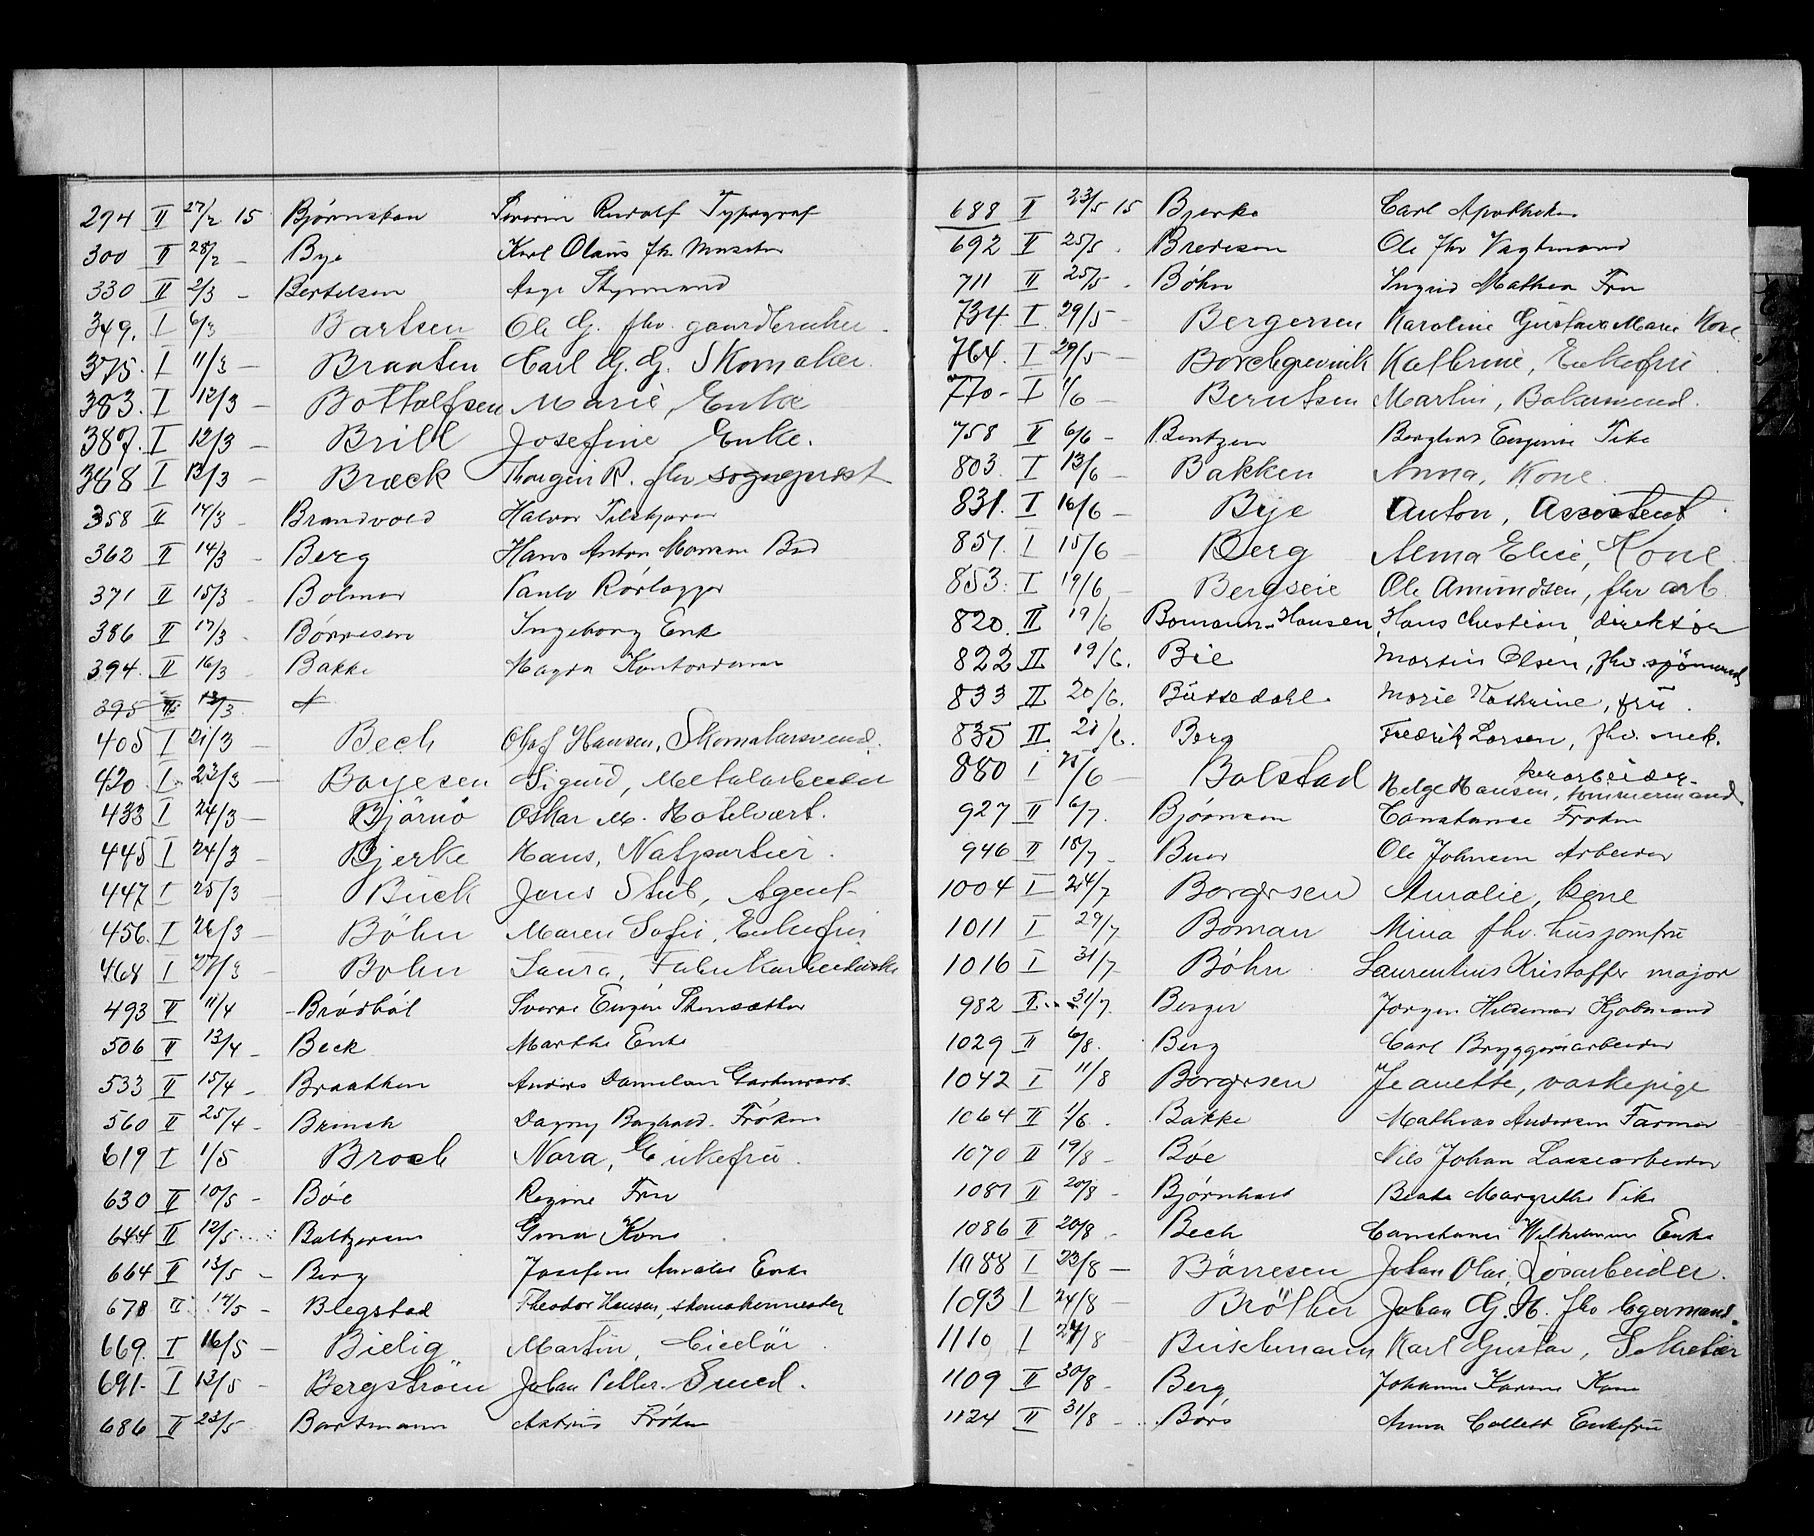 294 II 27/2 15 Bjørnstan Rudolf Typograf
300 II 28/2 - Bye Karl Olaus fhv.
330 II 2/3 - Bertelsen Aage Styrmand
349. I 6/3 Bartsen Ole G. fhv. gaardbruker -
375. I 11/3 - Braaten Carl G. G. Skomaker.
383. I 12/3 - Bottolfsen Marie, Enke
387. I 12/3 - Brill Josefine Enke.
388 I 13/3 - Bræck R. fhv sogneprest
358 II 14/3 - Brandvold Halvor
362 II 14/3 - Berg Hans Anton
371 II 15/3 - Bolmar Rørlægger
386 II 17/3 - Børresen Ingeborg Enke
394. II 16/3 Bakke Magda Kontordame
395 II 13/3
405 I 21/3 - Bech Olaf Hansen, Skomakersvend.
420 I 23/3 - Boyesen Sigurd, Metalarbeider
433 I 24/3 - Bjørnø Oskar M. Hotelvært.
445 I 24/3 - Bjerke Hans, Natportier.
447 I 25/3 - Buck Jens Stub, Agent
456. I 26/3 - Bøhn Maren Sofie, Enkefru
468 I 27/3 - Bohn Laura, Fabrikarbeiderske
493 II 11/4 - Brødbøl Sverre Eugen
506 II 13/4 - Beck Marthe Enke
533 II 15/4 - Braathen Anders Danielsen Gartnerarb.
560 II 25/4 - Brinch Dagny Frøken
619 I 1/5 Broch Nora, Enkefru.
630 II 10/5 - Bøe Regine Fru
644 II 12/5 Baltzersen Gina Kone
664 II 13/5 - Berg Josefine Amalie Enke
678 II 14/5 - Blegstad Theodor Hansen, skomakermester
669. I 16/5 - Bielig Martin, Ciselør
691. I 13/5 - Bergstrøm Johan Petter. Smed.
686 II 23/5 - Bartmann Frøken
688 II 23/5 15 Bjerke Carl Apotheker
692 II 25/5 - Bredesen Ole fhv Vagtmand
711 II 25/5 - Bøhn Ingrid Mathea Fru
734. I 29/5 - Bergersen Karoline Gustava Marie Kone
764. I 29/5 - Borchgrevink Kathrine, Enkefru
770 - I 1/6 - Berntsen Martin, Bakersvend.
758 II 6/6 - Bentzen Eugenie Pike
803. I 13/6 - Bakken Anna, Kone
831. I 16/6 - Bye Anton, Assistent
851. I 15/6 - Berg Alma Elise, Kone
853. I 19/6 - Bergseie Ole Amundsen, fhv arb.
820. II 19/6 Bomann-Hansen, Hans Christian, direktør
822 II 19/6. Bie Martin Olsen, fhv. sjømand
833 II 20/6. Büssedahl Marie Kathrine, fru.
835 II 20/6. Berg Fredrik Larsen, fhv. mek.
880 I 25/6 - Bolstad Helge Hansen, tømmermand
927 II 6/7. Bjørnsen Constance Frøken
946 II 18/7 - Buer Ole Johnsen Arbeider
1004 I 24/7 Borgersen Amalie, kone
1011 I 29/7 Boman Mina fhv. husjomfru
1016 I 31/7 Bøhn Laurentius Kristoffer major
982 II 31/7. Berger Jørgen Hildemar Kjøbmand
1029 II 6/8. Berg Carl Bryggeriarbeider
1042 I 11/8 Borgersen Jeanette, vaskepige
1064 II 1/6. Bakke Mathias Andersen Farmer
1070 II 19/8 - Bøe Nils Johan Løssearbeider
1081 II 20/8 - Bjørnhaug Beate Margrethe Pike
1086 II 20/8 - Bech Constance Wilhelmine Enke
1088 I 23/8 - Børresen Johan Olai, Løsarbeider.
1093 I 24/8 - Brøther Johan G. H. fhv Eiermand.
1110 I 27/8 - Buschmann Karl Gustav, Sekretær
1109 II 30/8 - Berg Johanne Karine Kone
1124 II 31/8 - Børs Anna Collett Enkefru